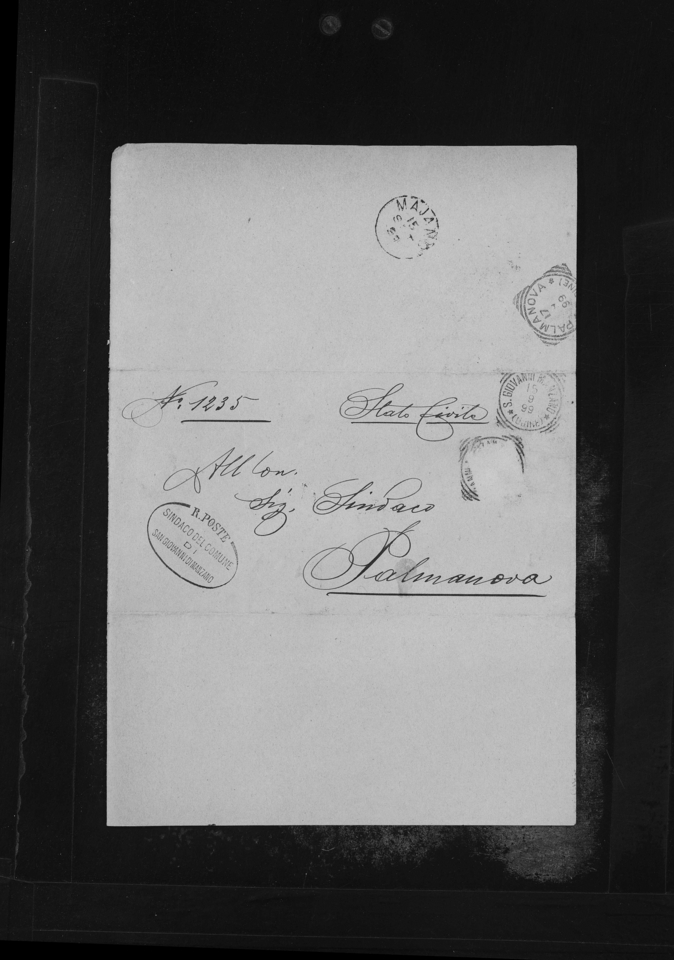 MAJANO
15
PALMANOVA
17
99
S. GIOVANNI DI MANZANO
15
6
99
Nº 1235
Stato Civile
All'On.
Sig. Sindaco
Palmanova
R. POSTE
SINDACO DEL COMUNE
DI
SAN GIOVANNI DI MANZANO